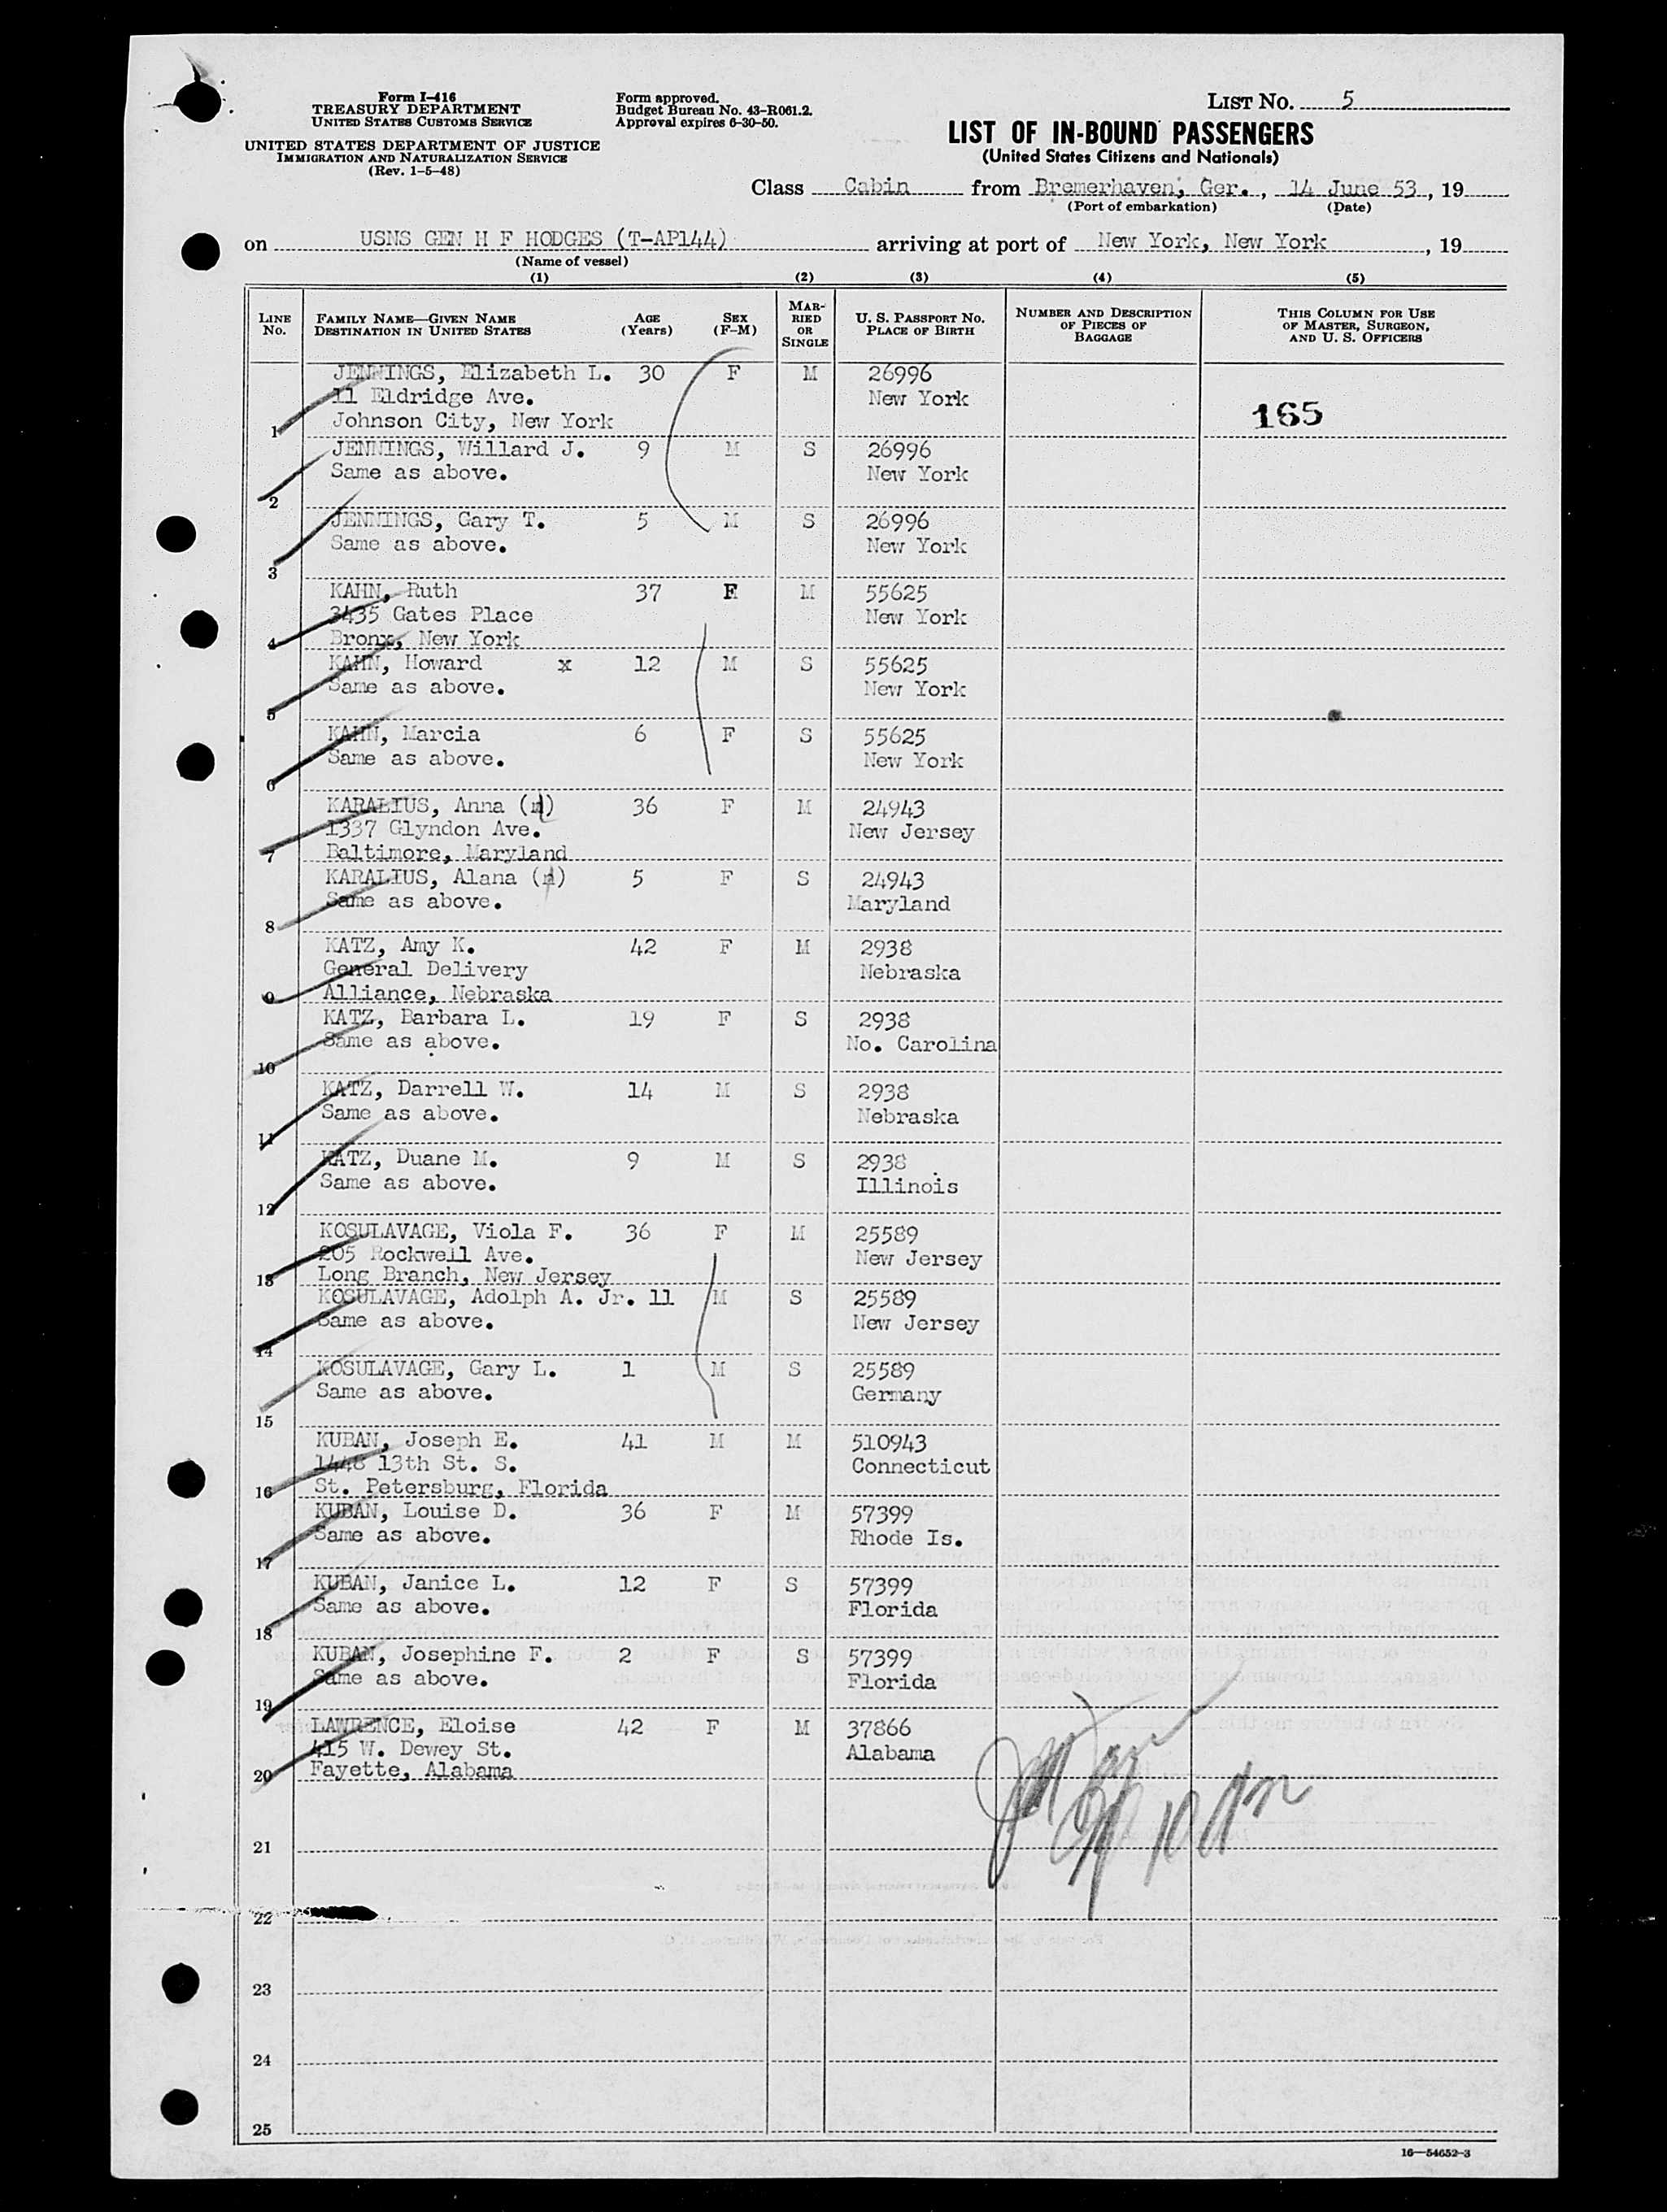 Form I-416
TREASURY DEPARTMENT
UNITED STATES CUSTOMS SERVICE
UNITED STATES DEPARTMENT OF JUSTICE
IMMIGRATION AND NATURALIZATION SERVICE
(Rev. 1-5-48)
Form approved.
Budget Bureau No. 43-R061.2.
Approval expires 6-30-50.
LIST NO. 5
LIST OF IN-BOUND PASSENGERS
(United States Citizens and Nationals)
Class Cabin from Bremerhaven, Ger., 14 June 53, 19
(Port of embarkation) (Date)
on USNS GEN H F HODGES (T-AP144) arriving at port of New York, New York, 19
(Name of vessel)
(1) (2) (3) (4) (5)
LINE No. FAMILY NAME—GIVEN NAME DESTINATION IN UNITED STATES AGE (Years) SEX (F-M) MARRIED OR SINGLE U. S. PASSPORT NO. PLACE OF BIRTH NUMBER AND DESCRIPTION OF PIECES OF BAGGAGE THIS COLUMN FOR USE OF MASTER, SURGEON, AND U. S. OFFICERS
JENNINGS, Elizabeth L. 30 F M 26996
11 Eldridge Ave. New York
1 Johnson City, New York 165
JENNINGS, Willard J. 9 M S 26996
Same as above. New York
2
JENNINGS, Gary T. 5 M S 26996
Same as above. New York
3
KAHN, Ruth 37 F M 55625
3435 Gates Place New York
4 Bronx, New York
KAHN, Howard x 12 M S 55625
Same as above. New York
5
KAHN, Marcia 6 F S 55625
Same as above. New York
6
KARALIUS, Anna 36 F M 24943
1337 Glyndon Ave. New Jersey
7 Baltimore, Maryland
KARALIUS, Alana 5 F S 24943
Same as above. Maryland
8
KATZ, Amy K. 42 F M 2938
General Delivery Nebraska
9 Alliance, Nebraska
KATZ, Barbara L. 19 F S 2938
Same as above. No. Carolina
10
KATZ, Darrell W. 14 M S 2938
Same as above. Nebraska
11
KATZ, Duane M. 9 M S 2938
Same as above. Illinois
12
KOSULAVAGE, Viola F. 36 F M 25589
205 Rockwell Ave. New Jersey
13 Long Branch, New Jersey
KOSULAVAGE, Adolph A. Jr. 11 M S 25589
Same as above. New Jersey
14
KOSULAVAGE, Gary L. 1 M S 25589
Same as above. Germany
15
KUBAN, Joseph E. 41 M M 510943
1448 13th St. S. Connecticut
16 St. Petersburg, Florida
KUBAN, Louise D. 36 F M 57399
Same as above. Rhode Is.
17
KUBAN, Janice L. 12 F S 57399
Same as above. Florida
18
KUBAN, Josephine F. 2 F S 57399
Same as above. Florida
19
LAWRENCE, Eloise 42 F M 37866
415 W. Dewey St. Alabama
20 Fayette, Alabama
21
22
23
24
25
16—54652-3